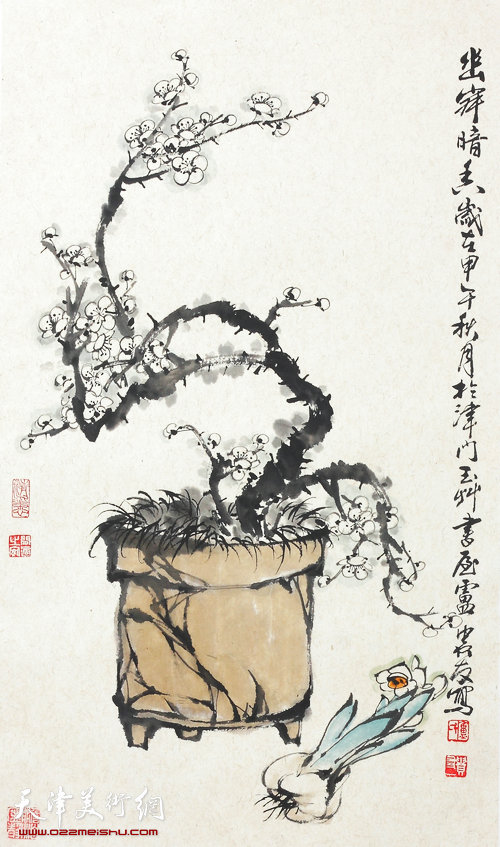 幽谷暗香歲在甲午秋月於津門玉艸書屋盧貴友寫
天津美術網
www.022meishu.com